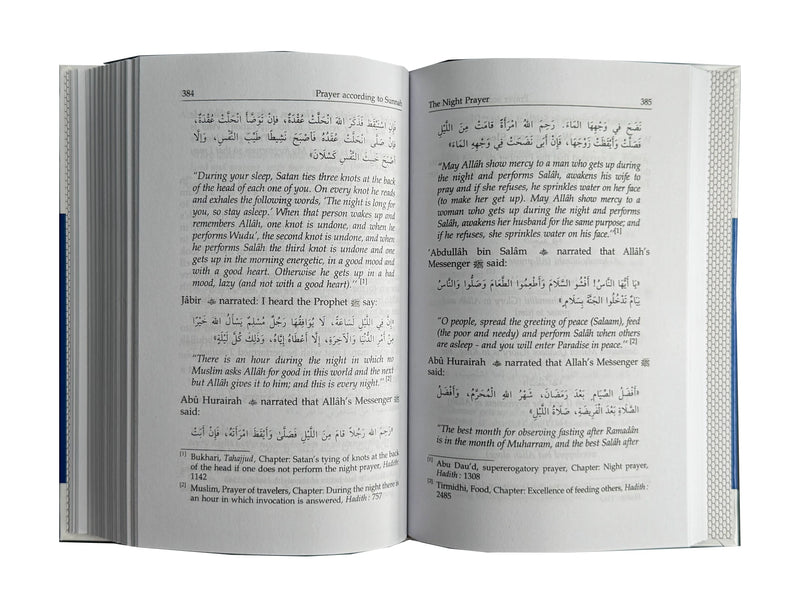 384
Prayer according to Sunnah
فَإِنِ اسْتَيْقَظَ فَذَكَرَ اللهَ انْحَلَّتْ عُقْدَةٌ، فَإِنْ تَوَضَّأَ انْحَلَّتْ عُقْدَةٌ،
فَإِنْ صَلَّى انْحَلَّتْ عُقَدُهُ فَأَصْبَحَ نَشِيطًا طَيِّبَ النَّفْسِ، وَإِلَّا
أَصْبَحَ خَبِيثَ النَّفْسِ كَسْلَانَ»
"During your sleep, Satan ties three knots at the back
of the head of each one of you. On every knot he reads
and exhales the following words, 'The night is long for
you, so stay asleep.' When that person wakes up and
remembers Allâh, one knot is undone, and when he
performs Wudu', the second knot is undone, and when
he performs Salâh the third knot is undone and one
gets up in the morning energetic, in a good mood and
with a good heart. Otherwise he gets up in a bad
mood, lazy (and not with a good heart)." [1]
Jâbir narrated: I heard the Prophet ﷺ say:
«إِنَّ فِي اللَّيْلِ لَسَاعَةً، لَا يُوَافِقُهَا رَجُلٌ مُسْلِمٌ يَسْأَلُ اللهَ خَيْرًا
مِنْ أَمْرِ الدُّنْيَا وَالْآخِرَةِ، إِلَّا أَعْطَاهُ إِيَّاهُ، وَذَلِكَ كُلَّ لَيْلَةٍ»
"There is an hour during the night in which no
Muslim asks Allâh for good in this world and the next
but Allâh gives it to him; and this is every night." [2]
Abû Hurairah narrated that Allâh's Messenger ﷺ
said:
«رَحِمَ الله رَجُلًا قَامَ مِنَ اللَّيْلِ فَصَلَّىٰ وَأَيْقَظَ امْرَأَتَهُ، فَإِنْ أَبَتْ
[1] Bukhari, Tahajjud, Chapter: Satan's tying of knots at the back
of the head if one does not perform the night prayer, Hadith:
1142
[2] Muslim, Prayer of travelers, Chapter: During the night there is
an hour in which invocation is answered, Hadith : 757
The Night Prayer
385
نَضَحَ فِي وَجْهِهَا الْمَاءَ. رَحِمَ اللهُ امْرَأَةً قَامَتْ مِنَ اللَّيْلِ
فَصَلَّتْ وَأَيْقَظَتْ زَوْجَهَا، فَإِنْ أَبَى نَضَحَتْ فِي وَجْهِهِ الْمَاءَ»
"May Allâh show mercy to a man who gets up during
the night and performs Salâh, awakens his wife to
pray and if she refuses, he sprinkles water on her face
(to make her get up). May Allâh show mercy to a
woman who gets up during the night and performs
Salâh, awakens her husband for the same purpose; and
if he refuses, she sprinkles water on his face."[1]
'Abdullâh bin Salâm narrated that Allâh's
Messenger ﷺ said:
«يَا أَيُّهَا النَّاسُ! أَفْشُو السَّلَامَ وَأَطْعِمُوا الطَّعَامَ وَصَلُّوا وَالنَّاسُ
نِيَامٌ تَدْخُلُوا الْجَنَّةَ بِسَلَامٍ»
"O people, spread the greeting of peace (Salaam), feed
(the poor and needy) and perform Salâh when others
are asleep - and you will enter Paradise in peace." [2]
Abû Hurairah narrated that Allah's Messenger ﷺ
said:
«أَفْضَلُ الصِّيَامِ بَعْدَ رَمَضَانَ، شَهْرُ اللهِ الْمُحَرَّمُ، وَأَفْضَلُ
الصَّلَاةِ بَعْدَ الْفَرِيضَةِ، صَلَاةُ اللَّيْلِ»
"The best month for observing fasting after Ramadân
is in the month of Muharram, and the best Salâh after
[1] Abu Dau'd, supererogatory prayer, Chapter: Night prayer,
Hadith : 1308
[2] Tirmidhi, Food, Chapter: Excellence of feeding others, Hadith :
2485